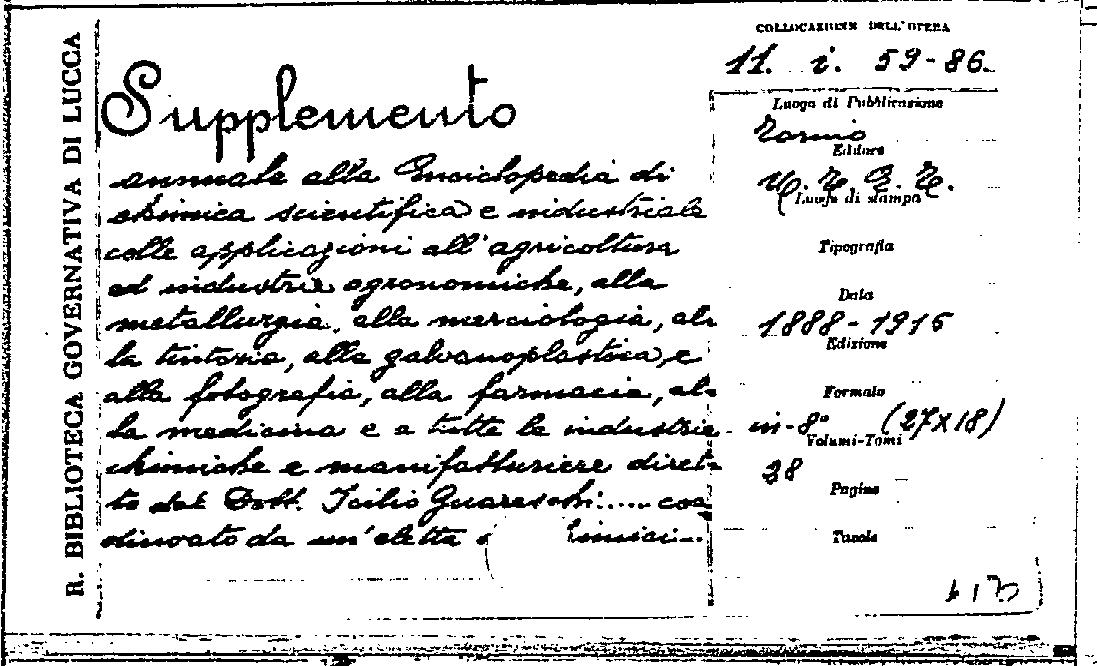 R. BIBLIOTECA GOVERNATIVA DI LUCCA
Supplemento
annuale alla Enciclopedia di
chimica scientifica e industriale
colle applicazioni all'agricoltura
ed industrie agronomiche, alla
metallurgia, alla merciologia, al-
la tintoria, alla galvanoplastica, e
alla fotografia, alla farmacia, al-
la medicina e a tutte le industrie
chimiche e manifatturiere diret-
to dal Dott. Icilio Guareschi..... coa
diuvato da un'eletta
COLLOCAZIONE DELL'OPERA
11. i. 59-86.
Luogo di Pubblicazione
Torino
Editore
U. T. E. T.
Luogo di stampa
Tipografia
Data
1888-1915
Edizione
Formato
in-8° (27x18)
Volumi-Tomi
28
Pagine
Tavole